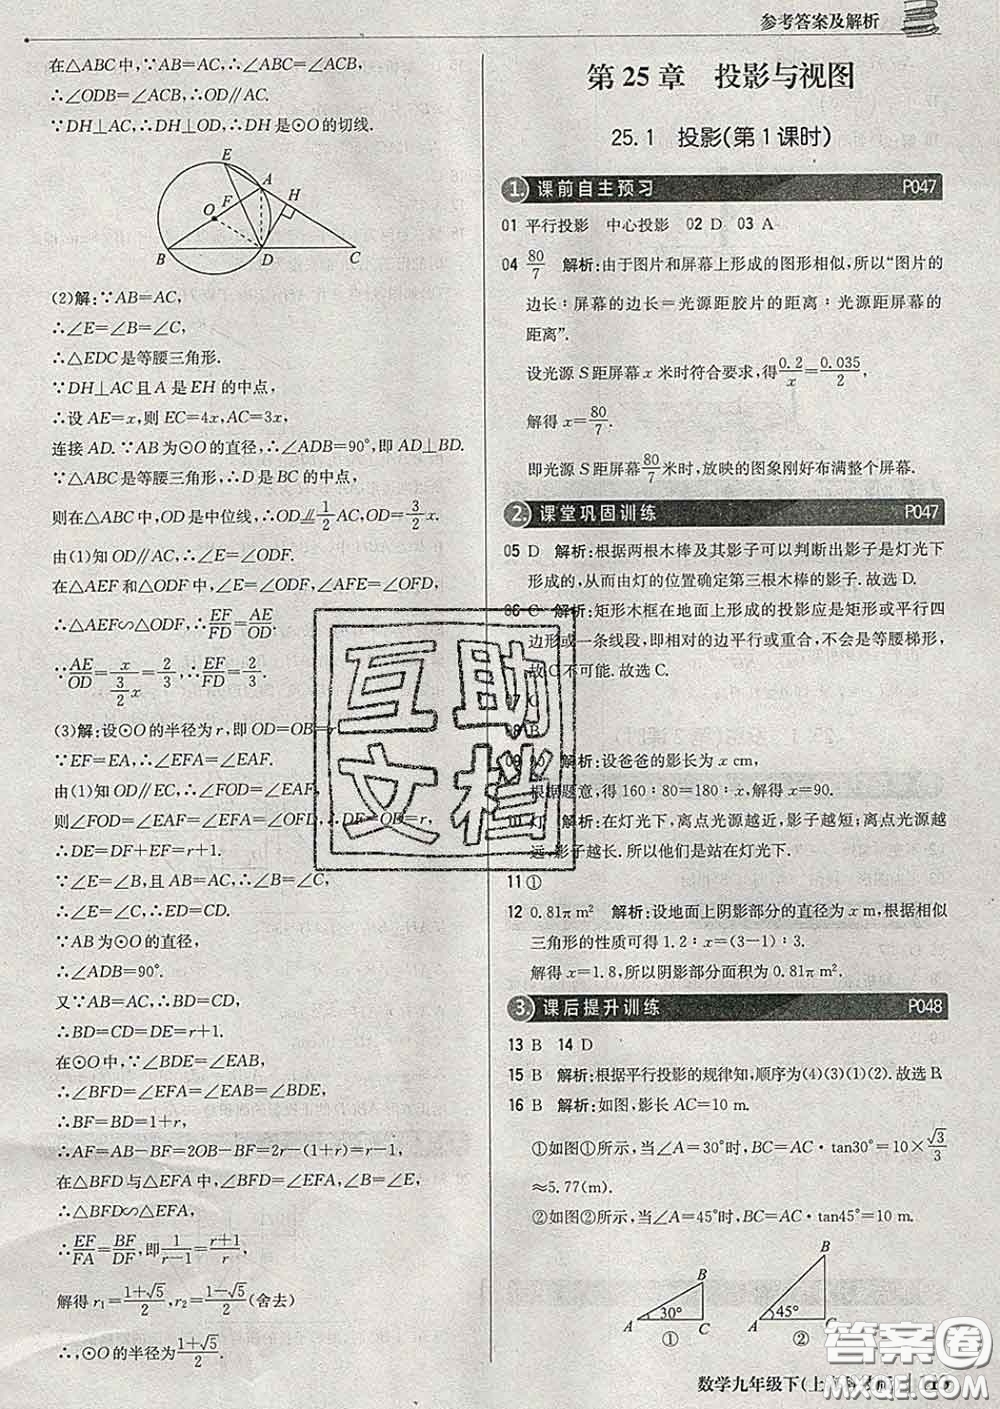 参考答案及解析
在△ABC中,∵AB=AC,∴∠ABC=∠ACB,
∴∠ODB=∠ACB,∴OD∥AC.
∵DH⊥AC,∴DH⊥OD,∴DH是⊙O的切线.
E
A
H
F
O
B
D
C
(2)解:∵AB=AC,
∴∠E=∠B=∠C,
∴△EDC是等腰三角形.
∵DH⊥AC且A是EH的中点,
∴设AE=x,则EC=4x,AC=3x,
连接AD.∵AB为⊙O的直径,∴∠ADB=90°,即AD⊥BD.
∵△ABC是等腰三角形,∴D是BC的中点,
则在△ABC中,OD是中位线,∴OD∥=1/2AC,OD=3/2x.
由(1)知OD∥AC,∴∠E=∠ODF.
在△AEF和△ODF中,∠E=∠ODF,∠AFE=∠OFD,
∴△AEF∽△ODF,∴EF/FD=AE/OD.
∵AE/OD=x/(3/2x)=2/3,∴EF/FD=2/3.
(3)解:设⊙O的半径为r,即OD=OB=r,
∵EF=EA,∴∠EFA=∠EAF.
由(1)知OD∥EC,∴∠FOD=∠EAF,
则∠FOD=∠EAF=∠EFA=∠OFD,∴DF=OD=r,
∴DE=DF+EF=r+1.
∵∠E=∠B,且AB=AC,∴∠B=∠C,
∴∠E=∠C,∴ED=CD.
∵AB为⊙O的直径,
∴∠ADB=90°.
又∵AB=AC,∴BD=CD,
∴BD=CD=DE=r+1.
在⊙O中,∵∠BDE=∠EAB,
∴∠BFD=∠EFA=∠EAB=∠BDE,
∴BF=BD=1+r,
∴AF=AB-BF=2OB-BF=2r-(1+r)=r-1.
在△BFD与△EFA中,∠BFD=∠EFA,∠B=∠E,
∴△BFD∽△EFA,
∴EF/FA=BF/DF,即1/(r-1)=(r+1)/r,
解得r₁=(1+√5)/2,r₂=(1-√5)/2(舍去)
∴,⊙O的半径为(1+√5)/2.
第25章 投影与视图
25.1 投影(第1课时)
1. 课前自主预习 P047
01 平行投影 中心投影 02 D 03 A
04 80/7 解析:由于图片和屏幕上形成的图形相似,所以“图片的
边长∶屏幕的边长=光源距胶片的距离∶光源距屏幕的
距离”.
设光源S距屏幕x米时符合要求,得0.2/x=0.035/2,
解得x=80/7.
即光源S距屏幕80/7米时,放映的图象刚好布满整个屏幕.
2. 课堂巩固训练 P047
05 D 解析:根据两根木棒及其影子可以判断出影子是灯光下
形成的,从而由灯的位置确定第三根木棒的影子.故选D.
06 C 解析:矩形木框在地面上形成的投影应是矩形或平行四
边形或一条线段,即相对的边平行或重合,不会是等腰梯形,
故C不可能.故选C.
07 C
08 B
09 90 解析:设爸爸的影长为x cm,
根据题意,得160∶80=180∶x,解得x=90.
10 灯 解析:在灯光下,离点光源越近,影子越短;离点光源越
远,影子越长.所以他们是站在灯光下.
11 ①
12 0.81π m² 解析:设地面上阴影部分的直径为x m,根据相似
三角形的性质可得1.2∶x=(3-1)∶3.
解得x=1.8,所以阴影部分面积为0.81π m².
3. 课后提升训练 P048
13 B 14 D
15 B 解析:根据平行投影的规律知,顺序为(4)(3)(1)(2).故选B.
16 B 解析:如图,影长AC=10 m.
①如图①所示,当∠A=30°时,BC=AC·tan30°=10×√3/3
≈5.77(m).
②如图②所示,当∠A=45°时,BC=AC·tan45°=10 m.
A 30° B C
①
A 45° B C
②
互助
文档
答案圈
数学九年级下(上